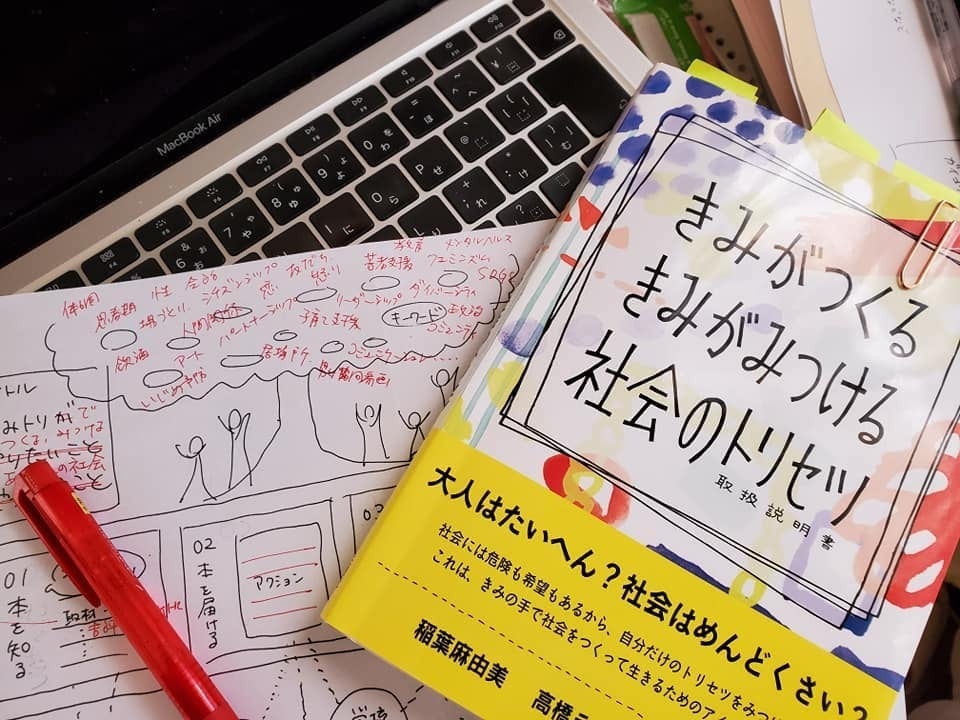 MacBook Air
きみがつくる
きみがみつける
社会のトリセツ
取扱説明書
大人はたいへん？社会はめんどくさい？
社会には危険も希望もあるから、自分だけのトリセツをみつ
これは、きみの手で社会をつくって生きるためのアイ
稲葉麻由美
高橋
教育 メンタルヘルス
若者支援 フェミニズム
SDGs
性
シチズンシップ
恋
思春期
場づくり
人間関係
パートナーシップ
リーダーシップ
ダイバーシティ
子育て支援
キーワード
政治
コミュニティ
飲酒
アート
居場所
コミュニケーション....
いじめ予防
トル
みトリがで
つくる、みつける
やりたいこと
の社会
01
本を知る
取材
02
本を届ける
アクション